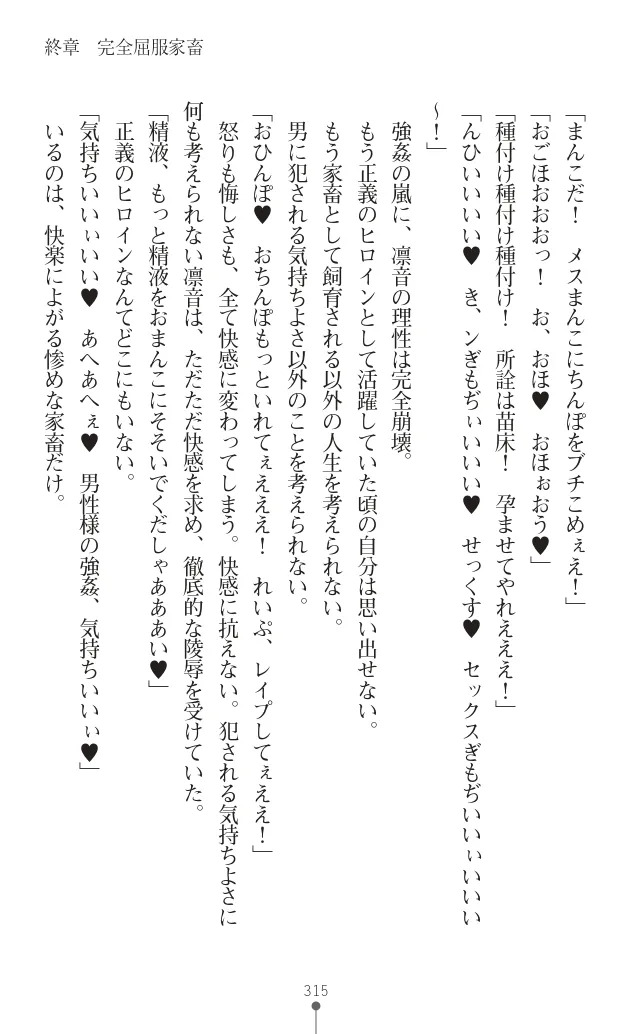 終章　完全屈服家畜
「まんこだ！　メスまんこにちんぽをブチこめぇえ！」
「おごほおおおっ！　お、おほ♥　おほぉおう♥」
「種付け種付け種付け！　所詮は苗床！　孕ませてやれえええ！」
「んひいいいい♥　き、ンぎもぢぃいいいい♥　せっくす♥　セックスぎもぢいいぃいいい
～！」
強姦の嵐に、凛音の理性は完全崩壊。
もう正義のヒロインとして活躍していた頃の自分は思い出せない。
もう家畜として飼育される以外の人生を考えられない。
男に犯される気持ちよさ以外のことを考えられない。
「おひんぽ♥　おちんぽもっといれてぇえええ！　れいぷ、レイプしてぇええ！」
怒りも悔しさも、全て快感に変わってしまう。快感に抗えない。犯される気持ちよさに
何も考えられない凛音は、ただただ快感を求め、徹底的な陵辱を受けていた。
「精液、もっと精液をおまんこにそそいでくだしゃあああい♥」
正義のヒロインなんてどこにもいない。
「気持ちいいぃいい♥　あへあへぇ♥　男性様の強姦、気持ちいいいぃ♥」
いるのは、快楽によがる惨めな家畜だけ。
315